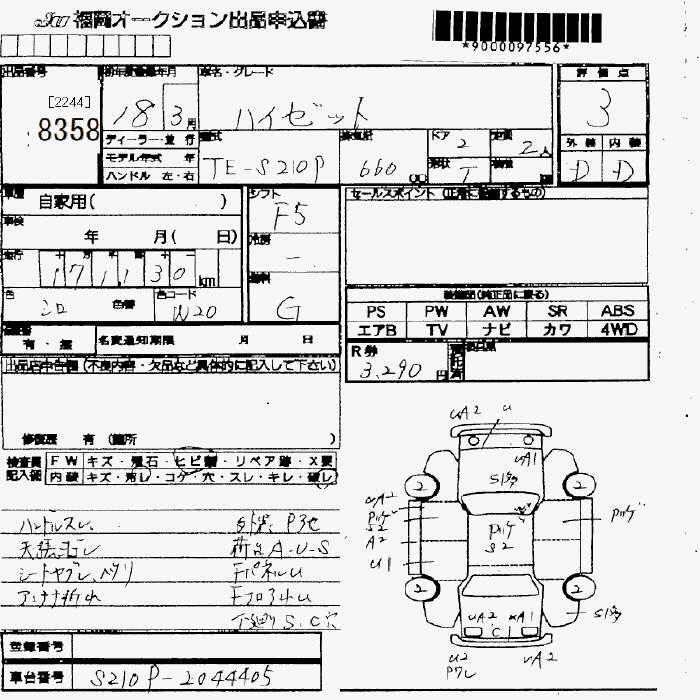 福岡オークション出品申込書
*9000097556*
出品番号
[2244]
8358
初年度登録年月
18 3月
ディーラー・並行
モデル年式 年
ハンドル 左・右
車名・グレード
ハイゼット
型式
TE-S210P
排気量
660
ドア
2
形状
T
定員
2人
評価点
3
外装 内装
D D
車歴
自家用( )
車検
年 月( 日)
走行
十 万 千 百 十 一
171,130km
色
シロ
色替
色コード
W20
シフト
F5
冷房
-
燃料
G
セールスポイント (正常に装備するもの)
装備品(純正品に限る)
PS PW AW SR ABS
エアB TV ナビ カワ 4WD
有・無
名変通知期限 月 日
R券
3,290円
出品店申告欄(不良内容・欠品など具体的に記入して下さい)
修復歴 有(箇所 )
検査員
記入欄
FW キズ・飛石・ヒビ割・リペア跡・X要
内装 キズ・汚レ・コゲ・穴・スレ・キレ・破レ
ハンドルスレ、
天張ヨゴレ
シートヤブレ、ヘタリ
アンテナ折れ
外装、P3セ
荷台A・U・S
FパネルU
FフロアU
下廻りS、C穴
登録番号
車台番号
S210P-2044405
UA2 U
UA1
S1多
2 2
UA2
A2
U1
S2
2 2
UA2 UA1
C1
S1多
U2
UA2